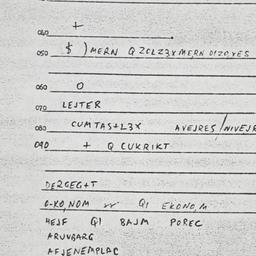 040 +
050 $ ) MERN Q ZCLZ3X MERN
060 0
070 LEJTER
080 CUMTAS+L3X AVEJRES /NIVEJR
090 + Q CUKRIKT
DEZGEG+T
O-KO, NOM Q1 EKONO, M
HEJF Q1 BAJM POREC
ARUVBARG
AFJENEMPLAC